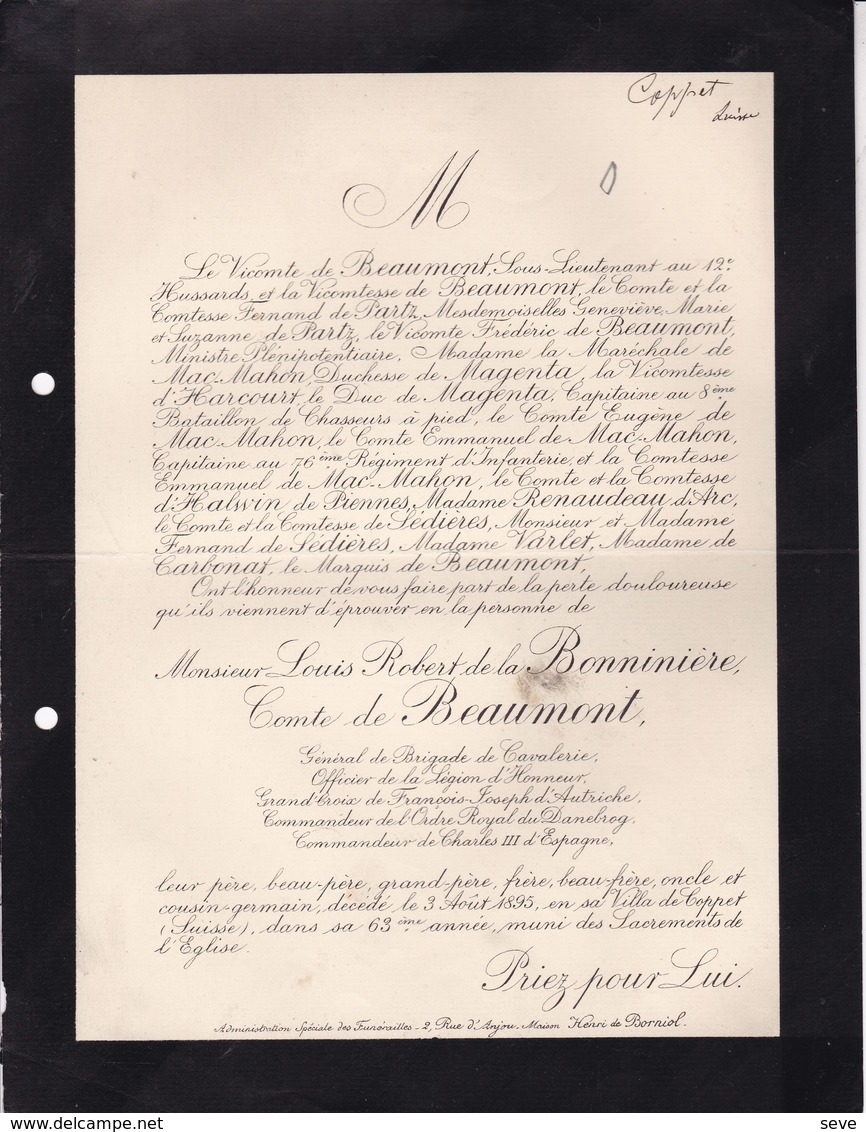 Coppet
Suisse
M
Le Vicomte de Beaumont, Sous-Lieutenant au 12e
Hussards et la Vicomtesse de Beaumont, le Comte et la
Comtesse Fernand de Partz, Mesdemoiselles Geneviève, Marie
et Suzanne de Partz, le Vicomte Frédéric de Beaumont,
Ministre Plénipotentiaire, Madame la Maréchale de
Mac-Mahon, Duchesse de Magenta, la Vicomtesse
d'Harcourt, le Duc de Magenta, Capitaine au 8ème
Bataillon de Chasseurs à pied, le Comte Eugène de
Mac-Mahon, le Comte Emmanuel de Mac-Mahon,
Capitaine au 76ème Régiment d'Infanterie, et la Comtesse
Emmanuel de Mac-Mahon, le Comte et la Comtesse
d'Halwin de Piennes, Madame Renaudeau d'Arc,
le Comte et la Comtesse de Sédières, Monsieur et Madame
Fernand de Sédières, Madame Varlet, Madame de
Carbonat, le Marquis de Beaumont,
Ont l'honneur de vous faire part de la perte douloureuse
qu'ils viennent d'éprouver en la personne de
Monsieur Louis Robert de la Bonninière,
Comte de Beaumont,
Général de Brigade de Cavalerie,
Officier de la Légion d'Honneur,
Grand'Croix de François-Joseph d'Autriche,
Commandeur de l'Ordre Royal du Danebrog,
Commandeur de Charles III d'Espagne,
leur père, beau-père, grand-père, frère, beau-frère, oncle et
cousin-germain, décédé le 3 Août 1895, en sa Villa de Coppet
(Suisse), dans sa 63ème année, muni des Sacrements de
l'Eglise.
Priez pour Lui.
Administration Spéciale des Funérailles - 2, Rue d'Anjou, Maison Henri de Borniol.
seve